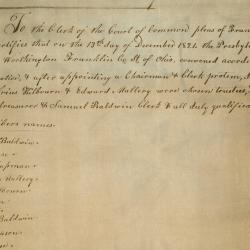 To the Clerk of the Court of Common pleas of Fran
ertifies that on the 13th day of December 1824 the Presbyte
Worthington Franklin Co. St. of Ohio, convened accordi
otice, & after appointing a Chairman & Clerk protem, &
rius Kilbourn & Edward Mallery were chosen trustees,
treasurer & Samuel Baldwin Clerk & all duly qualified
ibers names.
Baldwin
apman
Mallery
lbourn
Baldwin
ason